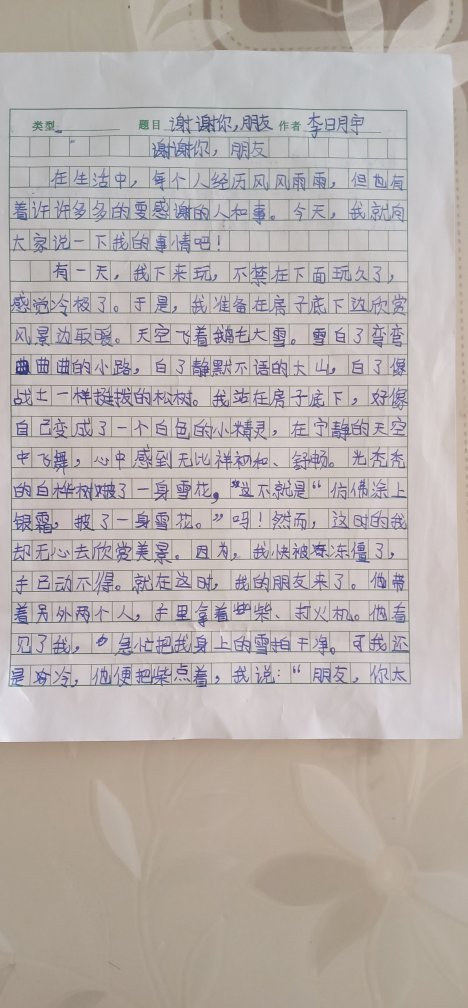 类型 题目 谢谢你,朋友 作者 李日月宇
谢谢你，朋友
在生活中，每个人经历风风雨雨，但也有
着许许多多的要感谢的人和事。今天，我就向
大家说一下我的事情吧！
有一天，我下来玩，不禁在下面玩久了，
感觉冷极了。于是，我准备在房子底下边欣赏
风景边取暖。天空飞着鹅毛大雪。雪白了弯弯
曲曲的小路，白了静默不语的大山，白了像
战士一样挺拔的松树。我站在房子底下，好像
自己变成了一个白色的小精灵，在宁静的天空
中飞舞，心中感到无比祥和、舒畅。光秃秃
的白桦树披了一身雪花，这不就是“仿佛涂上
银霜，披了一身雪花。”吗！然而，这时的我
却无心去欣赏美景。因为，我快被冻僵了，
手已动不得。就在这时，我的朋友来了。他带
着另外两个人，手里拿着柴、打火机。他看
见了我，急忙把我身上的雪拍干净。可我还
是冷，他便把柴点着，我说：“朋友，你太